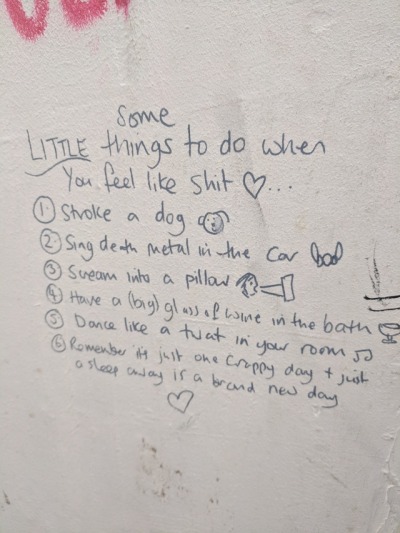 Some
LITTLE things to do when
You feel like shit ♡...
① Stroke a dog
② Sing death metal in the car
③ Scream into a pillow
④ Have a (big) glass of wine in the bath
⑤ Dance like a twat in your room ♫
⑥ Remember it's just one crappy day + just
a sleep away is a brand new day
♡